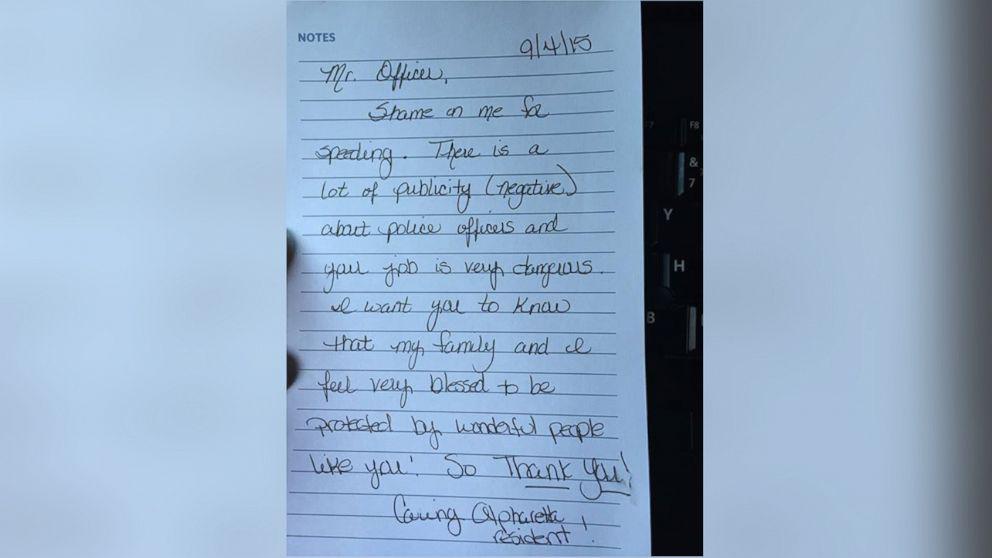 NOTES
9/4/15
Mr. Officer,
Shame on me for
speeding. There is a
lot of publicity (negative)
about police officers and
your job is very dangerous.
I want you to know
that my family and I
feel very blessed to be
protected by wonderful people
like you! So Thank You!
Caring Alpharetta
resident!
F8
&
7
Y
H
B